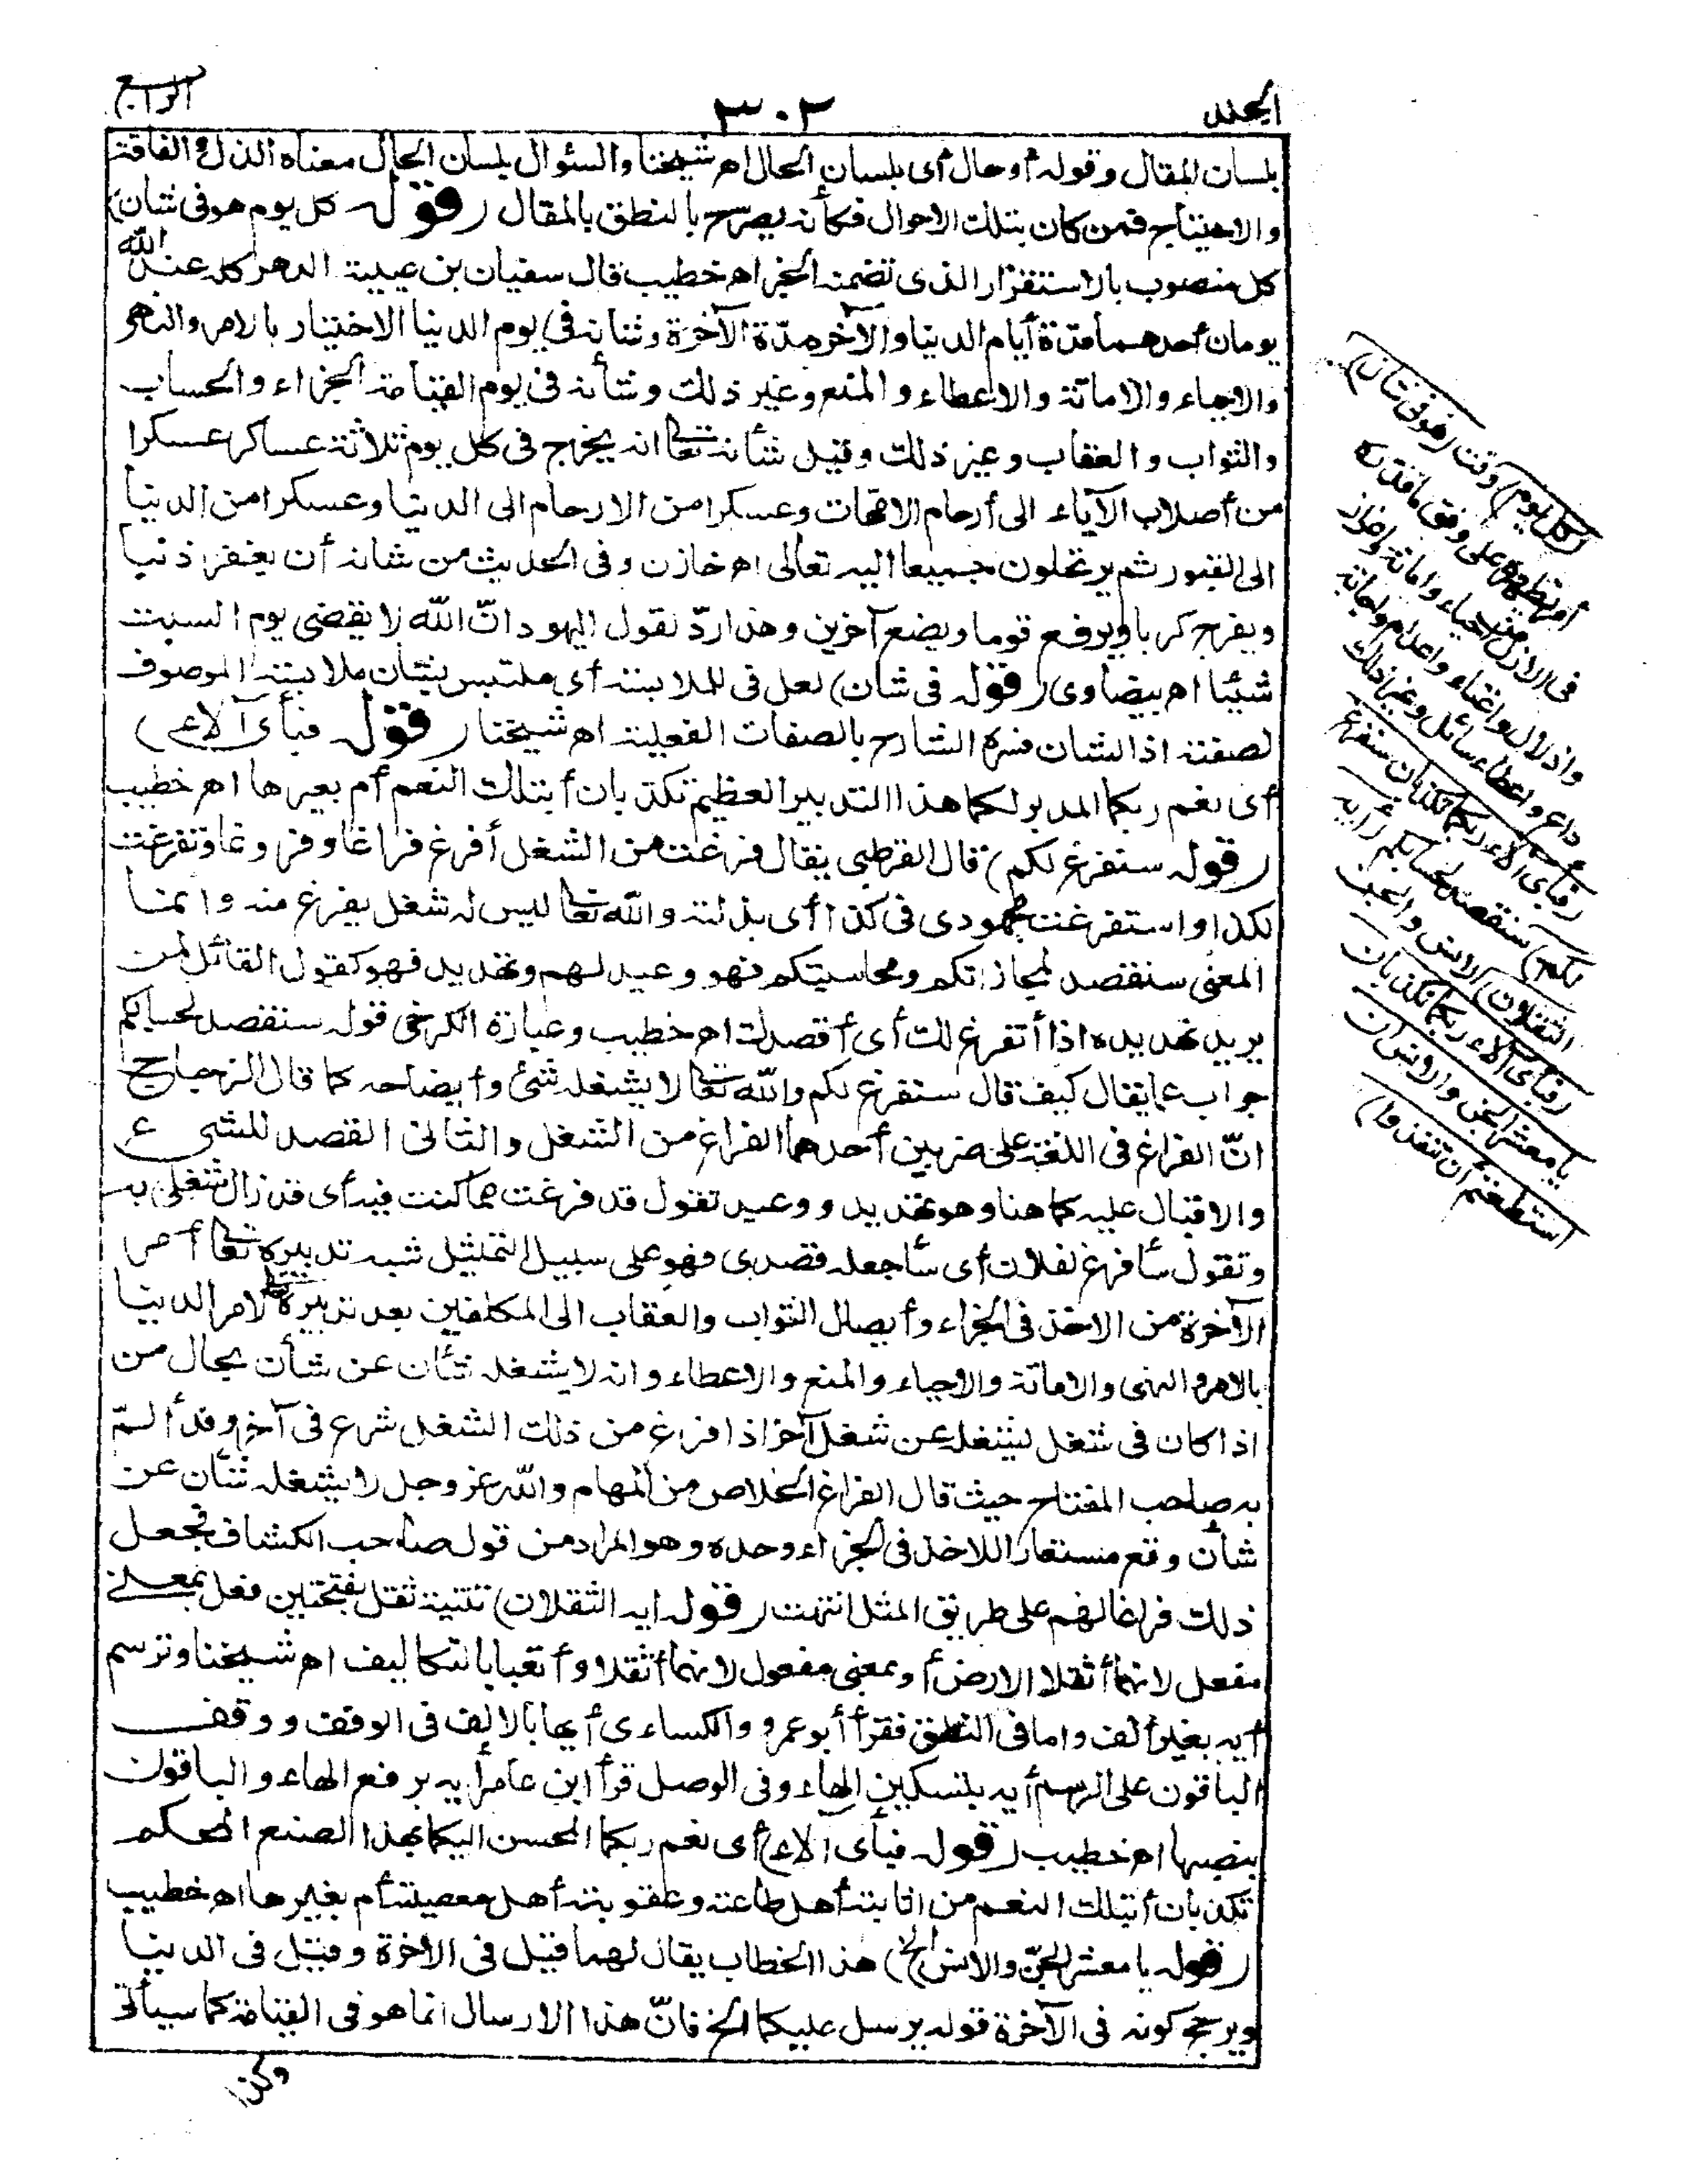 الجلد
٣٠٢
الرابع
بلسان المقال وقوله أو حال أى بلسان الحال اهـ شيخنا والسئوال بلسان الحال معناه الذل والفاقة
والاحتياج فمن كان بتلك الاحوال فكأنه يصرّح بالنطق بالمقال (قوله كل يوم هو فى شان)
كل منصوب بالاستقرار الذى تضمنه الخبر اهـ خطيب قال سفيان بن عيينة الدهر كله عند الله
يومان أحدهما مدّة أيام الدنيا والآخر مدّة الآخرة وشانه فى يوم الدنيا الاختبار بالامر والنهى
والاحياء والاماتة والاعطاء والمنع وغير ذلك وشأنه فى يوم القيامة الجزاء والحساب
والثواب والعقاب وغير ذلك وقيل شأنه تعا انه يخرج فى كل يوم ثلاثة عساكر عسكرا
من أصلاب الآباء الى أرحام الامّهات وعسكرا من الارحام الى الدنيا وعسكرا من الدنيا
الى القبور ثم يرتحلون جميعا اليه تعالى اهـ خازن وفى الحديث من شانه أن يغفر ذنبا
ويفرج كربا ويرفع قوما ويضع آخرين وهذا ردّ لقول اليهود انّ الله لا يقضى يوم السبت
شيئا اهـ بيضاوى (قوله فى شان) لعل فى للملابسة أى ملتبس بشان ملابسة الموصوف
لصفته اذ الشان فسره الشارح بالصفات الفعلية اهـ شيخنا (قوله فبأى آلاء)
أى نعم ربكما المدبر لكما هذا التدبير العظيم تكذبان أبتلك النعم أم بغيرها اهـ خطيب
(قوله سنفرغ لكم) قال القرطبى يقال فرغت من الشغل أفرغ فراغا وفروغا وتفرغت
لكذا واستفرغت مجهودى فى كذا أى بذلته والله تعا ليس له شغل يفرغ منه وانما
المعنى سنقصد لمجازاتكم ومحاسبتكم فهو وعيد لهم وتهديد فهو كقول القائل لمن
يريد تهديده اذا أتفرغ لك أى أقصدك اهـ خطيب وعبارة الكرخى قوله سنقصد لحسابكم
جواب عما يقال كيف قال سنفرغ لكم والله تعا لا يشغله شئ وأيضاحه كما قال الزجاج
انّ الفراغ فى اللغة على ضربين أحدهما الفراغ من الشغل والثانى القصد للشىء
والاقبال عليه كما هنا وهو تهديد ووعيد تقول قد فرغت مما كنت فيه أى قد زال شغلى به
وتقول سأفرغ لفلان أى سأجعله قصدى فهو على سبيل التمثيل شبه تدبيره تعا أمر
الآخرة من الاخذ فى الجزاء وأيصال الثواب والعقاب الى المكلفين بعد تدبيره تعا لامر الدنيا
بالامر والنهى والاماتة والاحياء والمنع والاعطاء وانه لا يشغله شأن عن شأن بحال من
اذا كان فى شغل يشغله عن شغل آخر اذا فرغ من ذلك الشغل شرع فى آخر وقد ألمّ
به صاحب المفتاح حيث قال الفراغ الخلاص من المهام والله عز وجل لا يشغله شأن عن
شأن وقع مستعارا للاخذ فى الجزاء وحده وهو المراد من قول صاحب الكشاف فجعل
ذلك فراغا لهم على طريق المثل انتهت (قوله ايه الثقلان) تثنية ثقل بفتحتين فعل بمعنى
مفعل لانهما أثقلا الارض أو بمعنى مفعول لانهما أثقلا وأتعبا بالتكاليف اهـ شيخنا وترسم
أيه بغير ألف واما فى النطق فقرأ أبو عمرو والكساءى أيها بالالف فى الوقف ووقف
الباقون على الرسم أيه بتسكين الهاء وفى الوصل قرأ ابن عامر أيه برفع الهاء والباقون
بنصبها اهـ خطيب (قوله فبأى الاء) أى نعم ربكما المحسن اليكما بهذا الصنع المحكم
تكذبان أبتلك النعم من اثابته أهل طاعته وعقوبته أهل معصيته أم بغيرها اهـ خطيب
(قوله يا معشر الجنّ والانس الخ) هذا الخطاب يقال لهما قيل فى الآخرة وقيل فى الدنيا
ويرجح كونه فى الآخرة قوله يرسل عليكما الخ فانّ هذا الارسال انما هو فى القيامة كما سيأتى
(كل يوم) وقت (هو فى شان)
أمر يظهره على وفق ما قدره
فى الازل من احياء واماتة واعزاز
واذلال واغناء واعدام واجابة
داع واعطاء سائل وغير ذلك
(فبأى الاء ربكما تكذبان سنفرغ
لكم) سنقصد لحسابكم (أيه
الثقلان) الانس والجن
(فبأى الاء ربكما تكذبان
يا معشر الجن والانس ان
استطعتم أن تنفذوا)